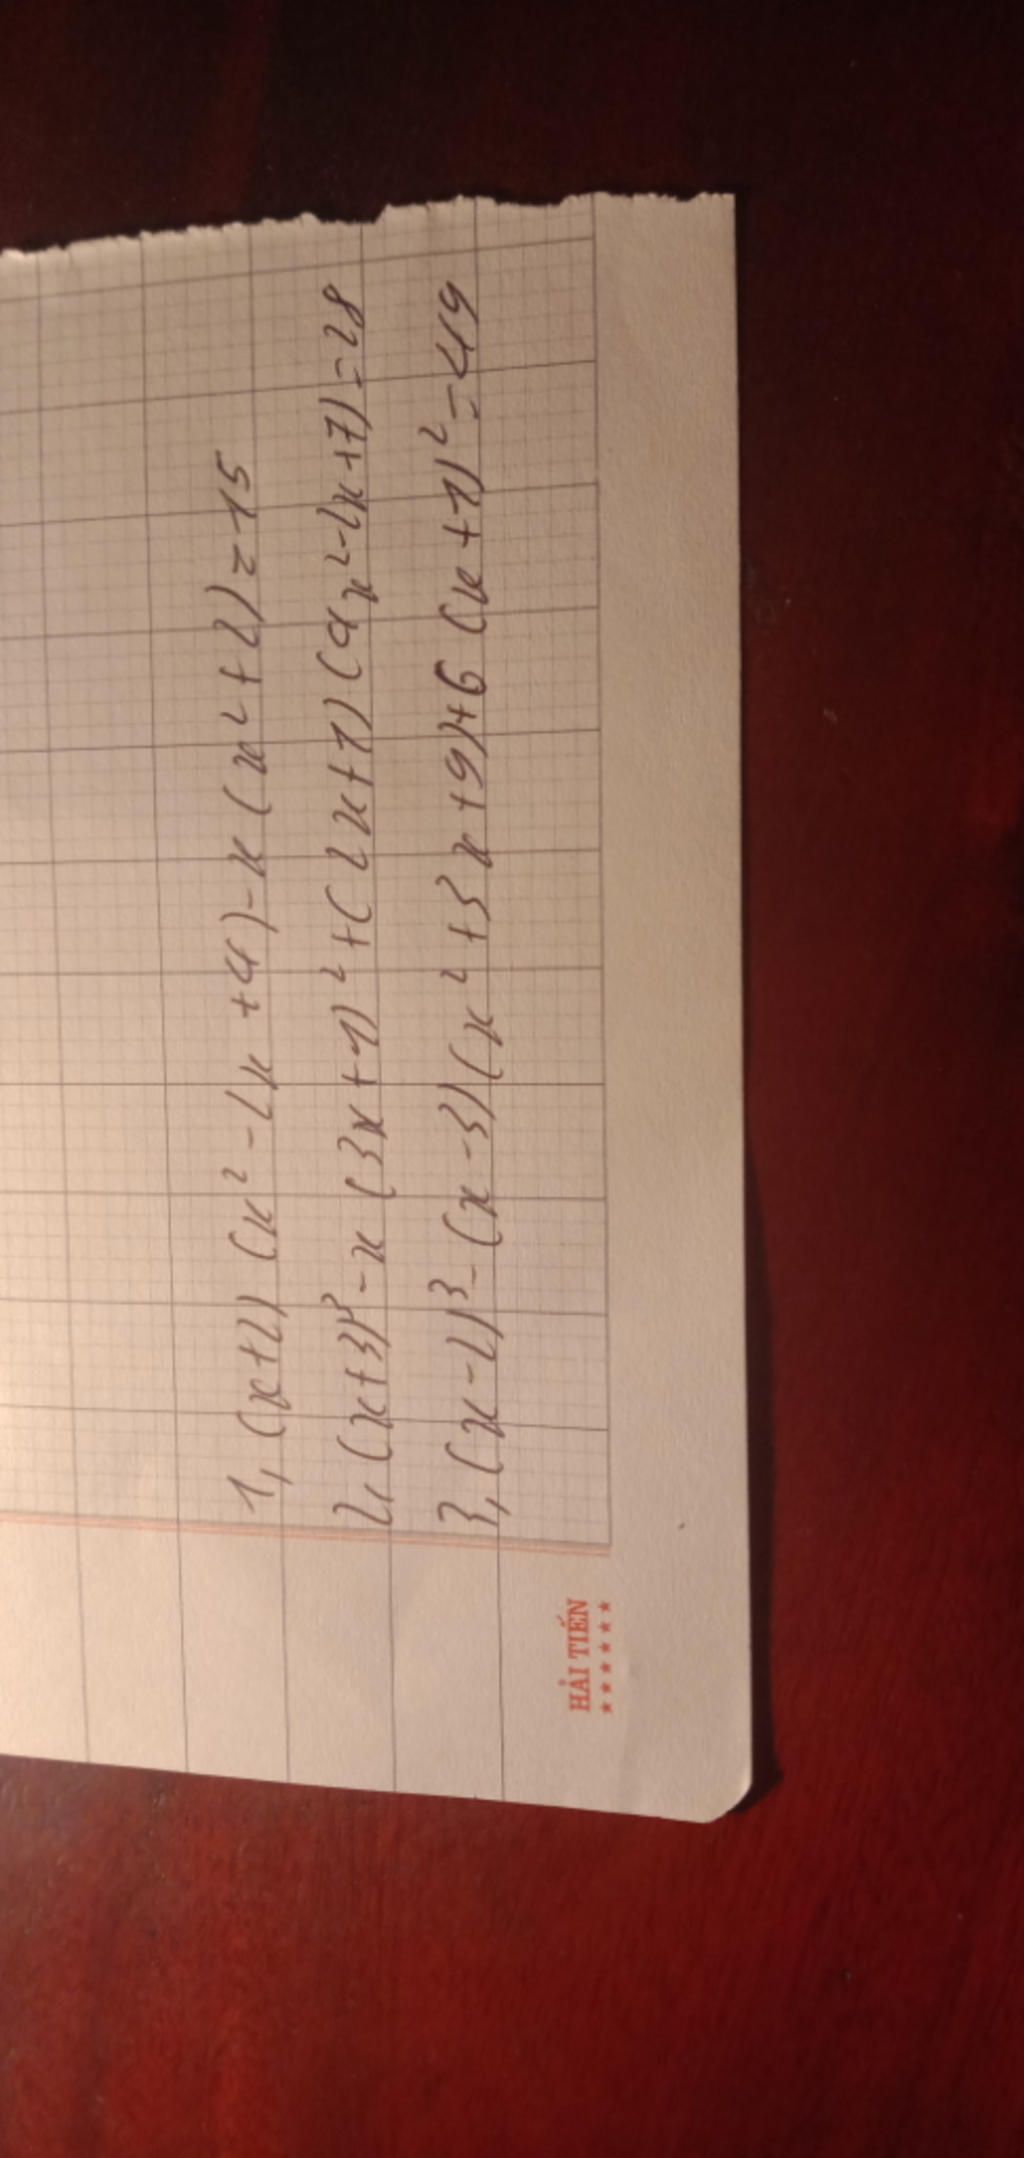 1, (x+2) (x² - 2x + 4) - x (x² + 2) = 15
2, (x+3)³ - x (3x+1)² + (2x+1) (4x² - 2x + 7) = 28
3, (x-2)³ - (x-3) (x² + 3x + 9) + 6 (x+1)² = 49
HẢI TIẾN
★★★★★★